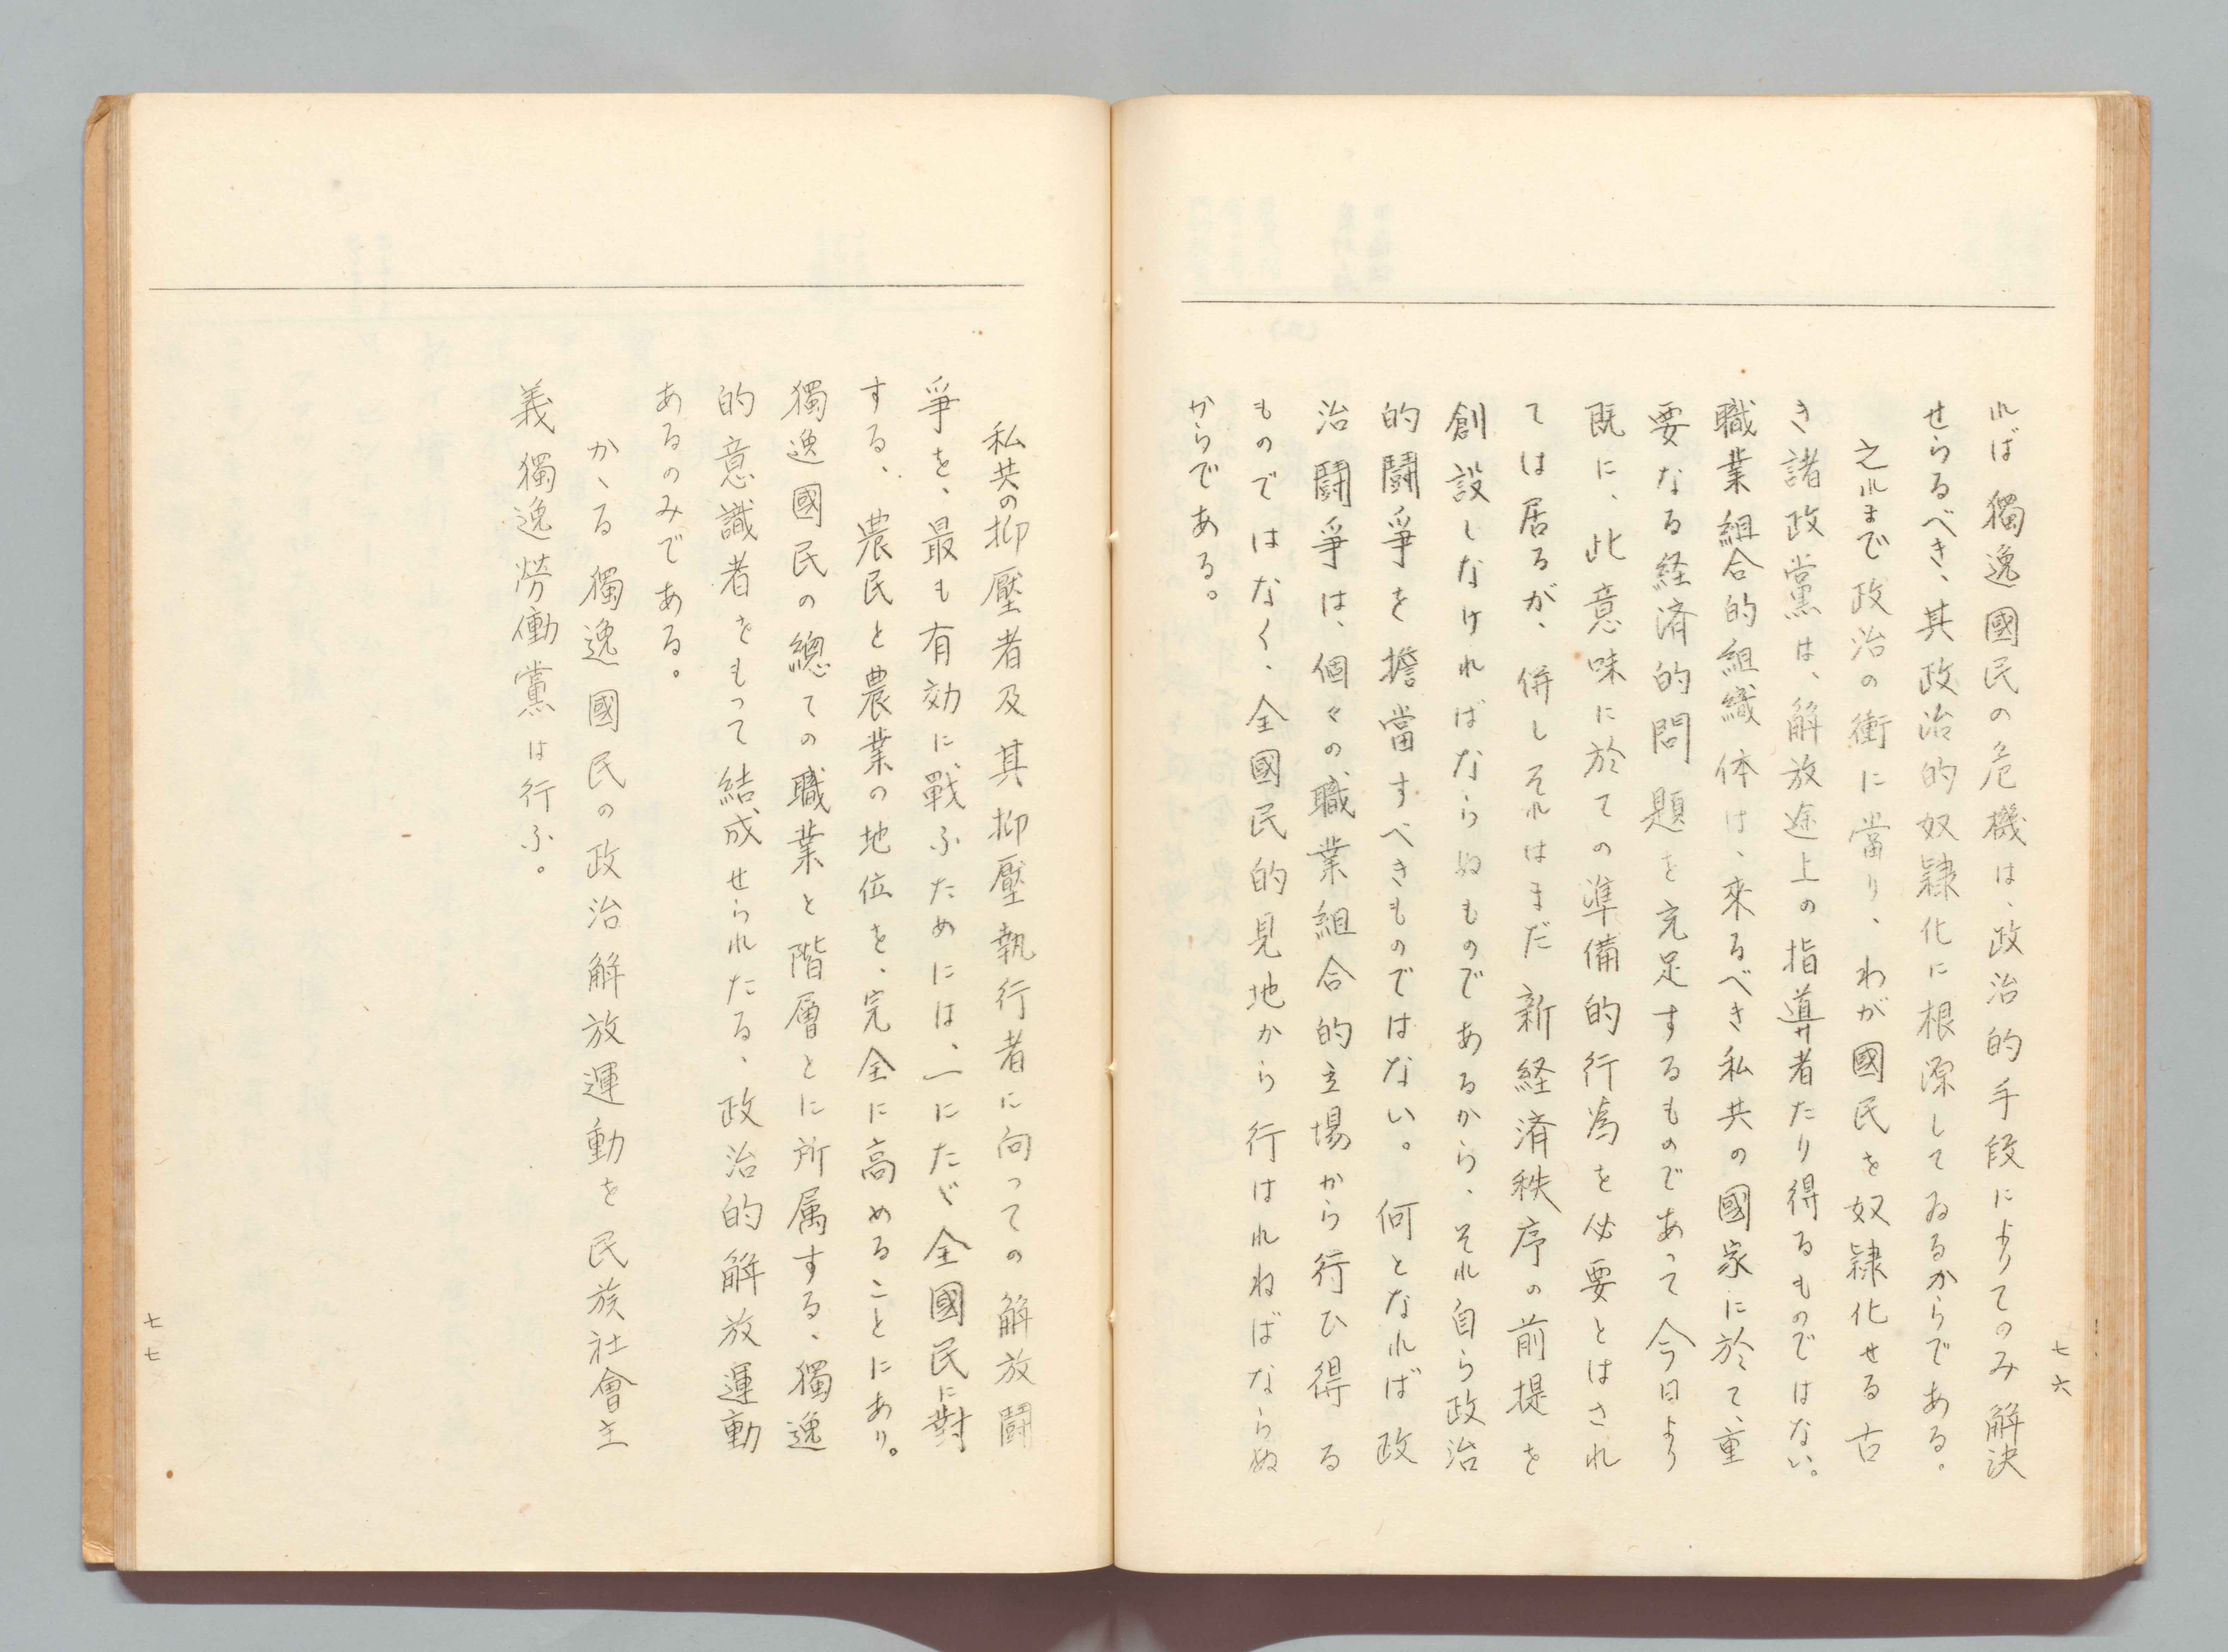 れば獨逸國民の危機は、政治的手段によりてのみ解決
せらるべき、其政治的奴隷化に根源してゐるからである。
之れまで政治の衝に當り、わが國民を奴隷化せる古
き諸政黨は、解放途上の指導者たり得るものではない。
職業組合的組織体は、來るべき私共の國家に於て、重
要なる経済的問題を充足するものであって今日より
既に、此意味に於ての準備的行為を必要とはされ
ては居るが、併しそれはまだ新経済秩序の前提を
創設しなければならぬものであるから、それ自ら政治
的鬪爭を擔當すべきものではない。何となれば政
治鬪爭は、個々の職業組合的立場から行ひ得る
ものではなく、全國民的見地から行はれねばならぬ
からである。
七六
私共の抑壓者及其抑壓執行者に向っての解放鬪
爭を、最も有効に、戰ふためには、一にたゞ全國民に對
する、農民と農業の地位を、完全に高めることにあり。
獨逸國民の總ての職業と階層とに所属する、獨逸
的意識者をもって結成せられたる、政治的解放運動
あるのみである。
かゝる獨逸國民の政治解放運動を民族社會主
義獨逸勞働黨は行ふ。
七七